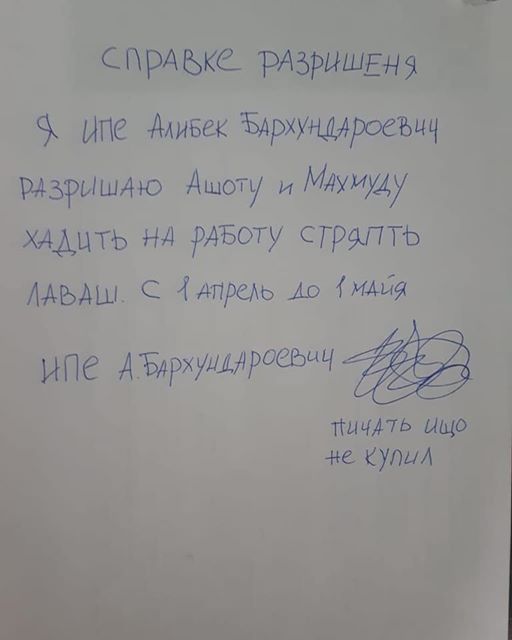 СПРАВКЕ РАЗРИШЕНЯ
Я ИПЕ АЛИБЕК БАРХУНДАРОЕВИЧ
РАЗРИШАЮ АШОТУ И МАХМУДУ
ХАДИТЬ НА РАБОТУ СТРЯПТЬ
ЛАВАШ. С 1 АПРЕЛЬ ДО 1 МАЙЯ
ИПЕ А.БАРХУНДАРОЕВИЧ
ПИЧАТЬ ИЩО
НЕ КУПИЛ